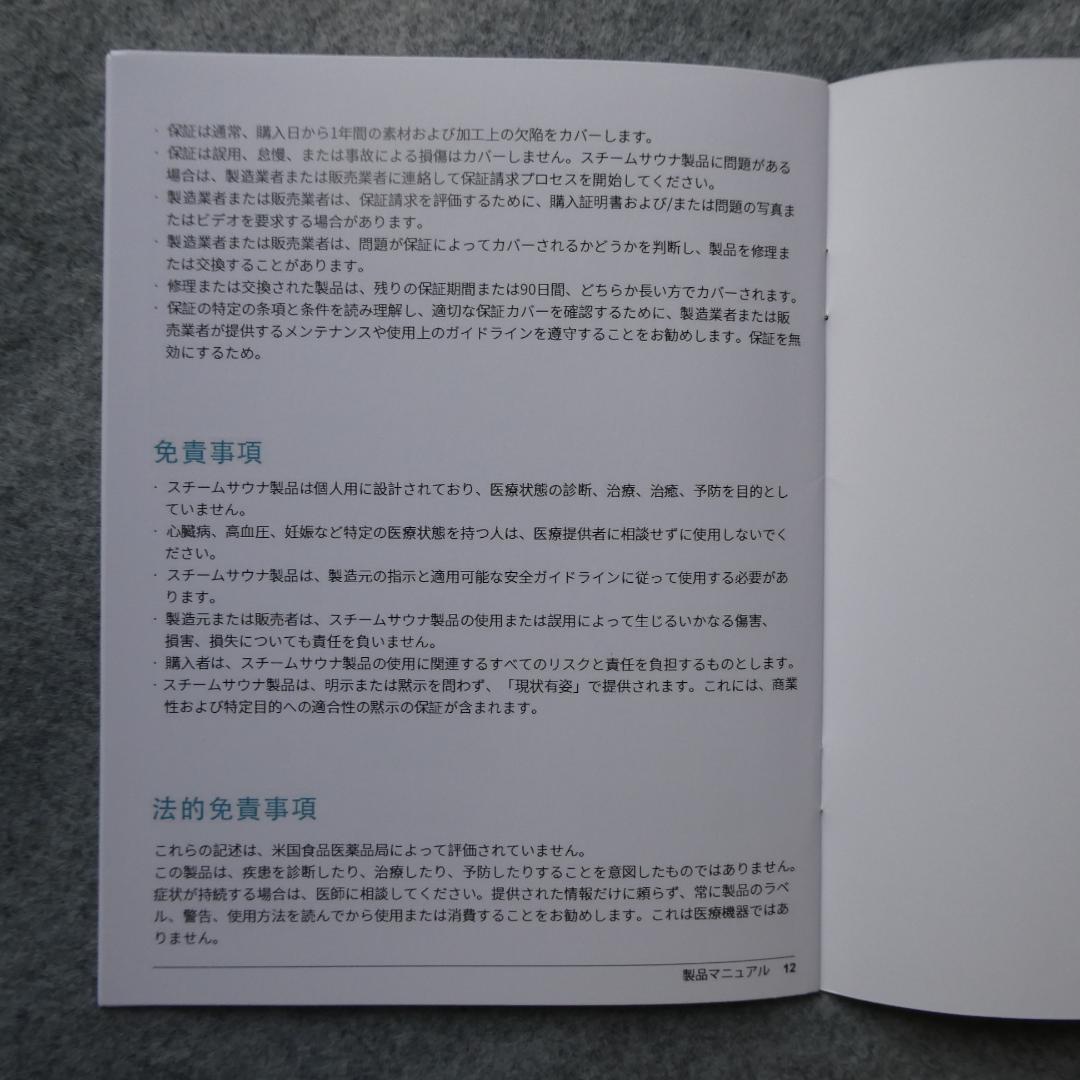 · 保証は通常、購入日から1年間の素材および加工上の欠陥をカバーします。
· 保証は誤用、怠慢、または事故による損傷はカバーしません。スチームサウナ製品に問題がある
場合は、製造業者または販売業者に連絡して保証請求プロセスを開始してください。
· 製造業者または販売業者は、保証請求を評価するために、購入証明書および/または問題の写真ま
たはビデオを要求する場合があります。
· 製造業者または販売業者は、問題が保証によってカバーされるかどうかを判断し、製品を修理ま
たは交換することがあります。
· 修理または交換された製品は、残りの保証期間または90日間、どちらか長い方でカバーされます。
· 保証の特定の条項と条件を読み理解し、適切な保証カバーを確認するために、製造業者または販
売業者が提供するメンテナンスや使用上のガイドラインを遵守することをお勧めします。保証を無
効にするため。
免責事項
· スチームサウナ製品は個人用に設計されており、医療状態の診断、治療、治癒、予防を目的とし
ていません。
· 心臓病、高血圧、妊娠など特定の医療状態を持つ人は、医療提供者に相談せずに使用しないでく
ださい。
· スチームサウナ製品は、製造元の指示と適用可能な安全ガイドラインに従って使用する必要があ
ります。
· 製造元または販売者は、スチームサウナ製品の使用または誤用によって生じるいかなる傷害、
損害、損失についても責任を負いません。
· 購入者は、スチームサウナ製品の使用に関連するすべてのリスクと責任を負担するものとします。
· スチームサウナ製品は、明示または黙示を問わず、「現状有姿」で提供されます。これには、商業
性および特定目的への適合性の黙示の保証が含まれます。
法的免責事項
これらの記述は、米国食品医薬品局によって評価されていません。
この製品は、疾患を診断したり、治療したり、予防したりすることを意図したものではありません。
症状が持続する場合は、医師に相談してください。提供された情報だけに頼らず、常に製品のラベ
ル、警告、使用方法を読んでから使用または消費することをお勧めします。これは医療機器ではあ
りません。
製品マニュアル 12